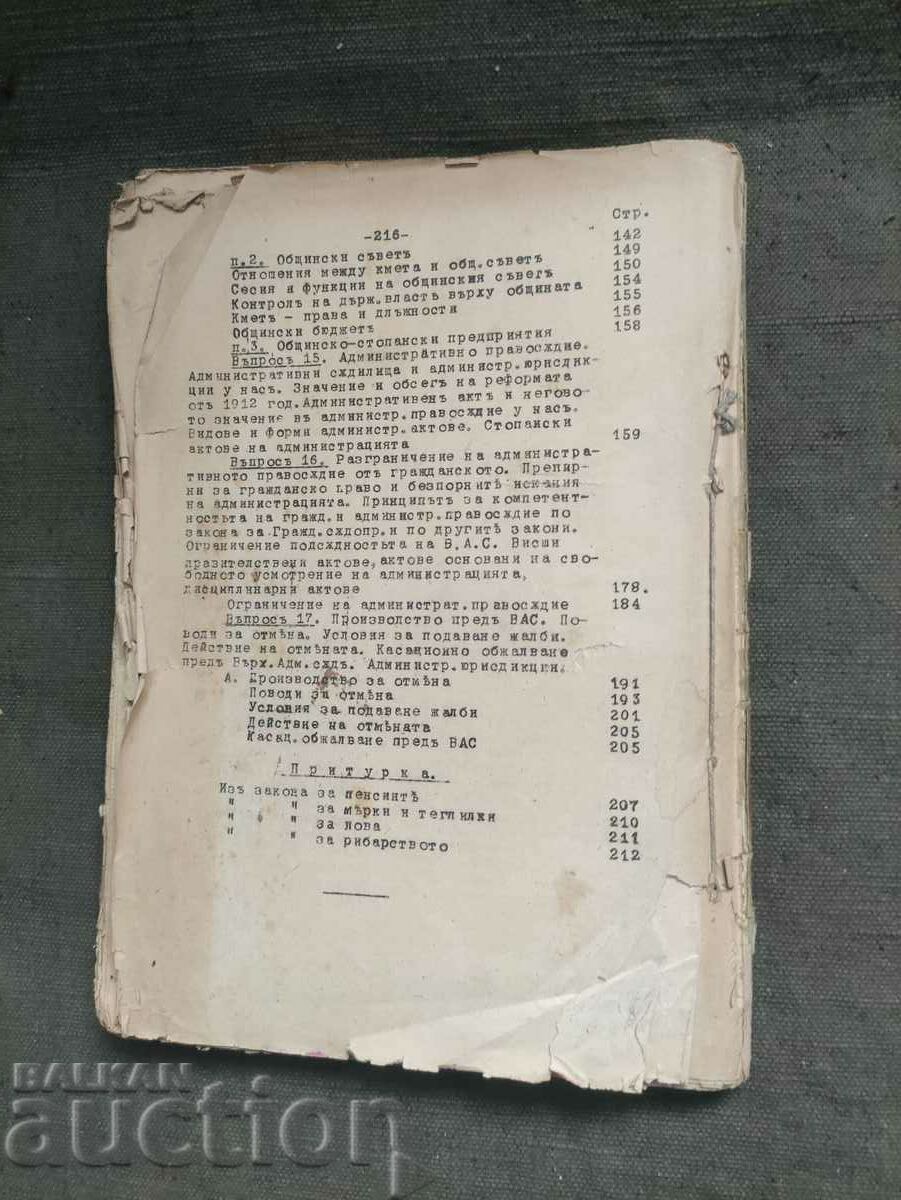 Стр.
-216-
п.2. Общински съветъ 142
Отношения между кмета и общ.съветъ 149
Сесия и функции на общинския съветъ 150
Контролъ на държ.власть върху общината 154
Кметъ - права и длъжности 155
Общински бюджетъ 156
п.3. Общинско-стопански предприятия 158
Въпросъ 15. Административно правосѫдие.
Административни сѫдилища и администр.юрисдик-
ции у насъ. Значение и обсегъ на реформата
отъ 1912 год.Административенъ актъ и негово-
то значение въ администр.правосѫдие у насъ.
Видове и форми администр.актове. Стопански
актове на администрацията 159
Въпросъ 16. Разграничение на администра-
тивното правосѫдие отъ гражданското. Препир-
ни за гражданско право и безпорнитѣ искания
на администрацията. Принципътъ за компетент-
ностьта на гражд.и администр.правосѫдие по
закона за Гражд.сѫдопр.и по другитѣ закони.
Ограничение подсѫдностьта на В.А.С. Висши
правителствени актове,актове основани на сво-
бодното усмотрение на администрацията,
дисциплинарни актове 178.
Ограничение на администрат.правосѫдие 184
Въпросъ 17. Производство предъ ВАС. По-
води за отмѣна. Условия за подаване жалби.
Действие на отмѣната. Касационно обжалване
предъ Върх.Адм.сѫдъ. Администр.юрисдикции.
А. Производство за отмѣна 191
Поводи за отмѣна 193
Условия за подаване жалби 201
Действие на отмѣната 205
Касац.обжалване предъ ВАС 205
Притурка.
Изъ закона за пенсиитѣ 207
" " за мѣрки и теглилки 210
" " за лова 211
" " за рибарството 212
BALKAN
аукцион